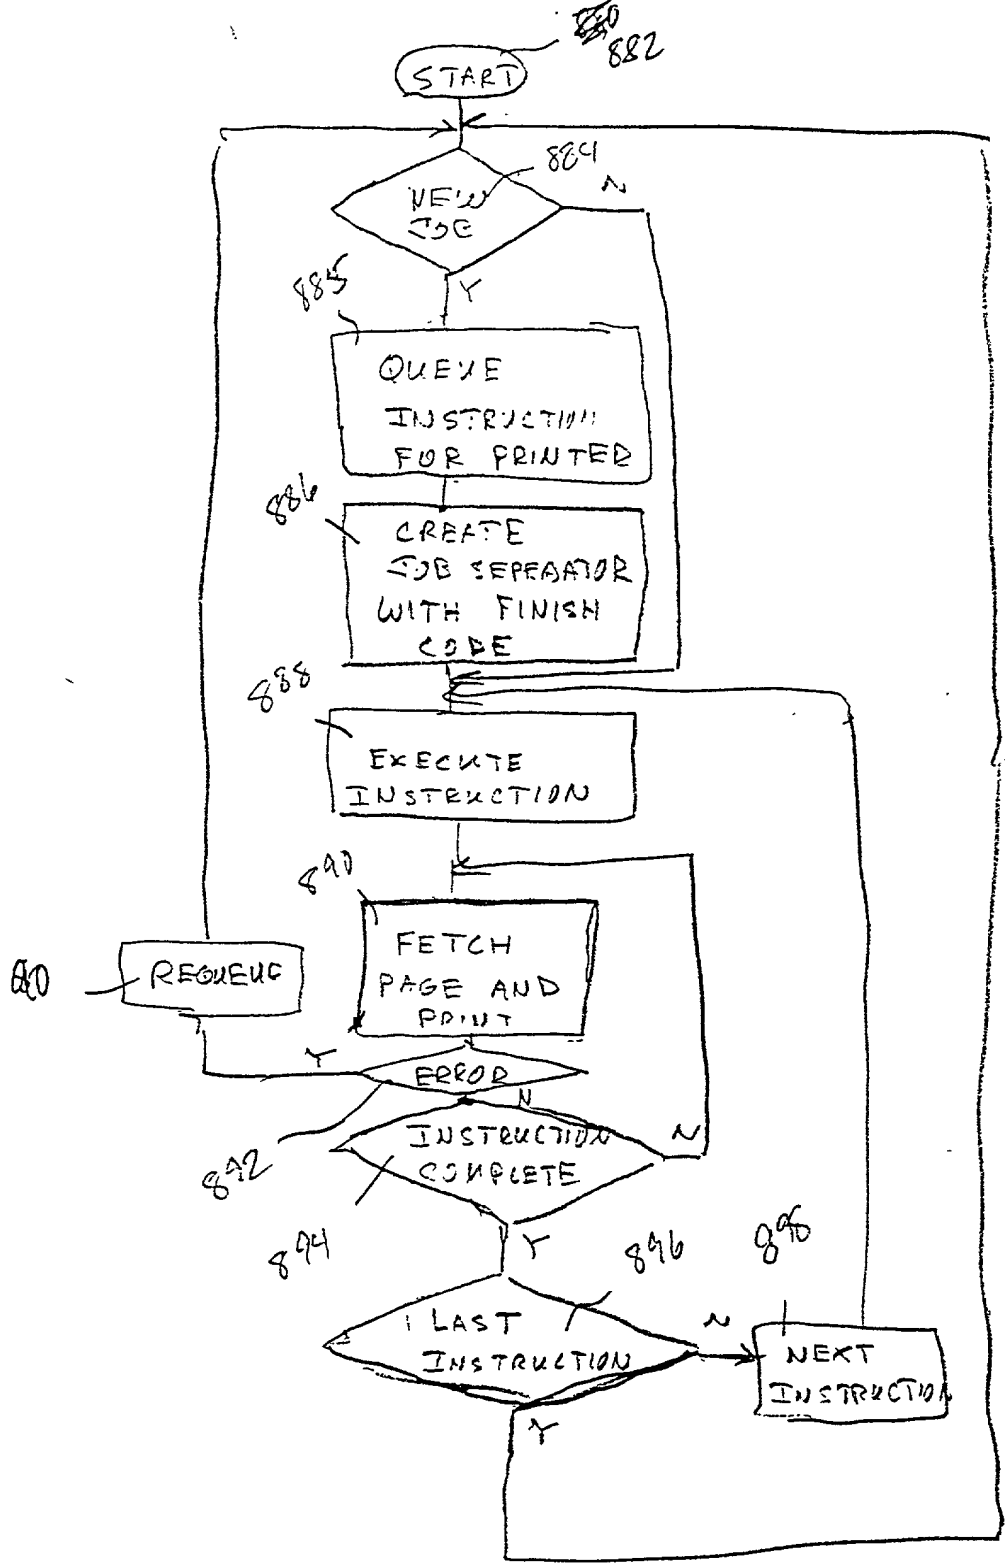 882
START
884
NEW
JOB
N
Y
885
QUEUE
INSTRUCTION
FOR PRINTER
886
CREATE
JOB SEPERATOR
WITH FINISH
CODE
888
EXECUTE
INSTRUCTION
890
FETCH
PAGE AND
PRINT
REQUEUE
Y
ERROR
N
892
INSTRUCTION
COMPLETE
N
894
Y
896
898
LAST
INSTRUCTION
N
NEXT
INSTRUCTION
Y